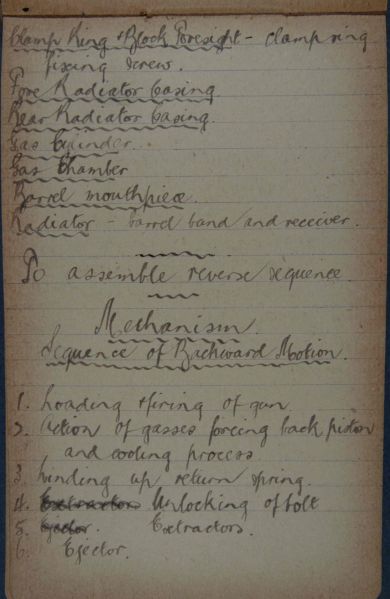 Clamp Ring & Block Foresight - clamp ring
fixing screw.
Fore Radiator Casing
Rear Radiator Casing.
Gas Cylinder.
Gas Chamber
Barrel mouthpiece.
Radiator - barrel band and receiver.
To assemble reverse sequence.
Mechanism.
Sequence of Backward Motion.
1. Loading & firing of gun
2. Action of gasses forcing back piston
and cooling process.
3. Winding up return spring.
4. Extractors Unlocking of bolt
5. Ejector. Extractors.
6. Ejector.